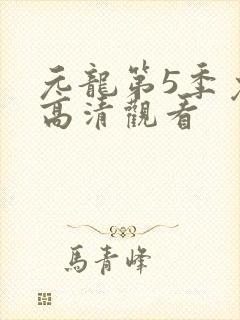 元龍第5季
高清觀看
馬青峰